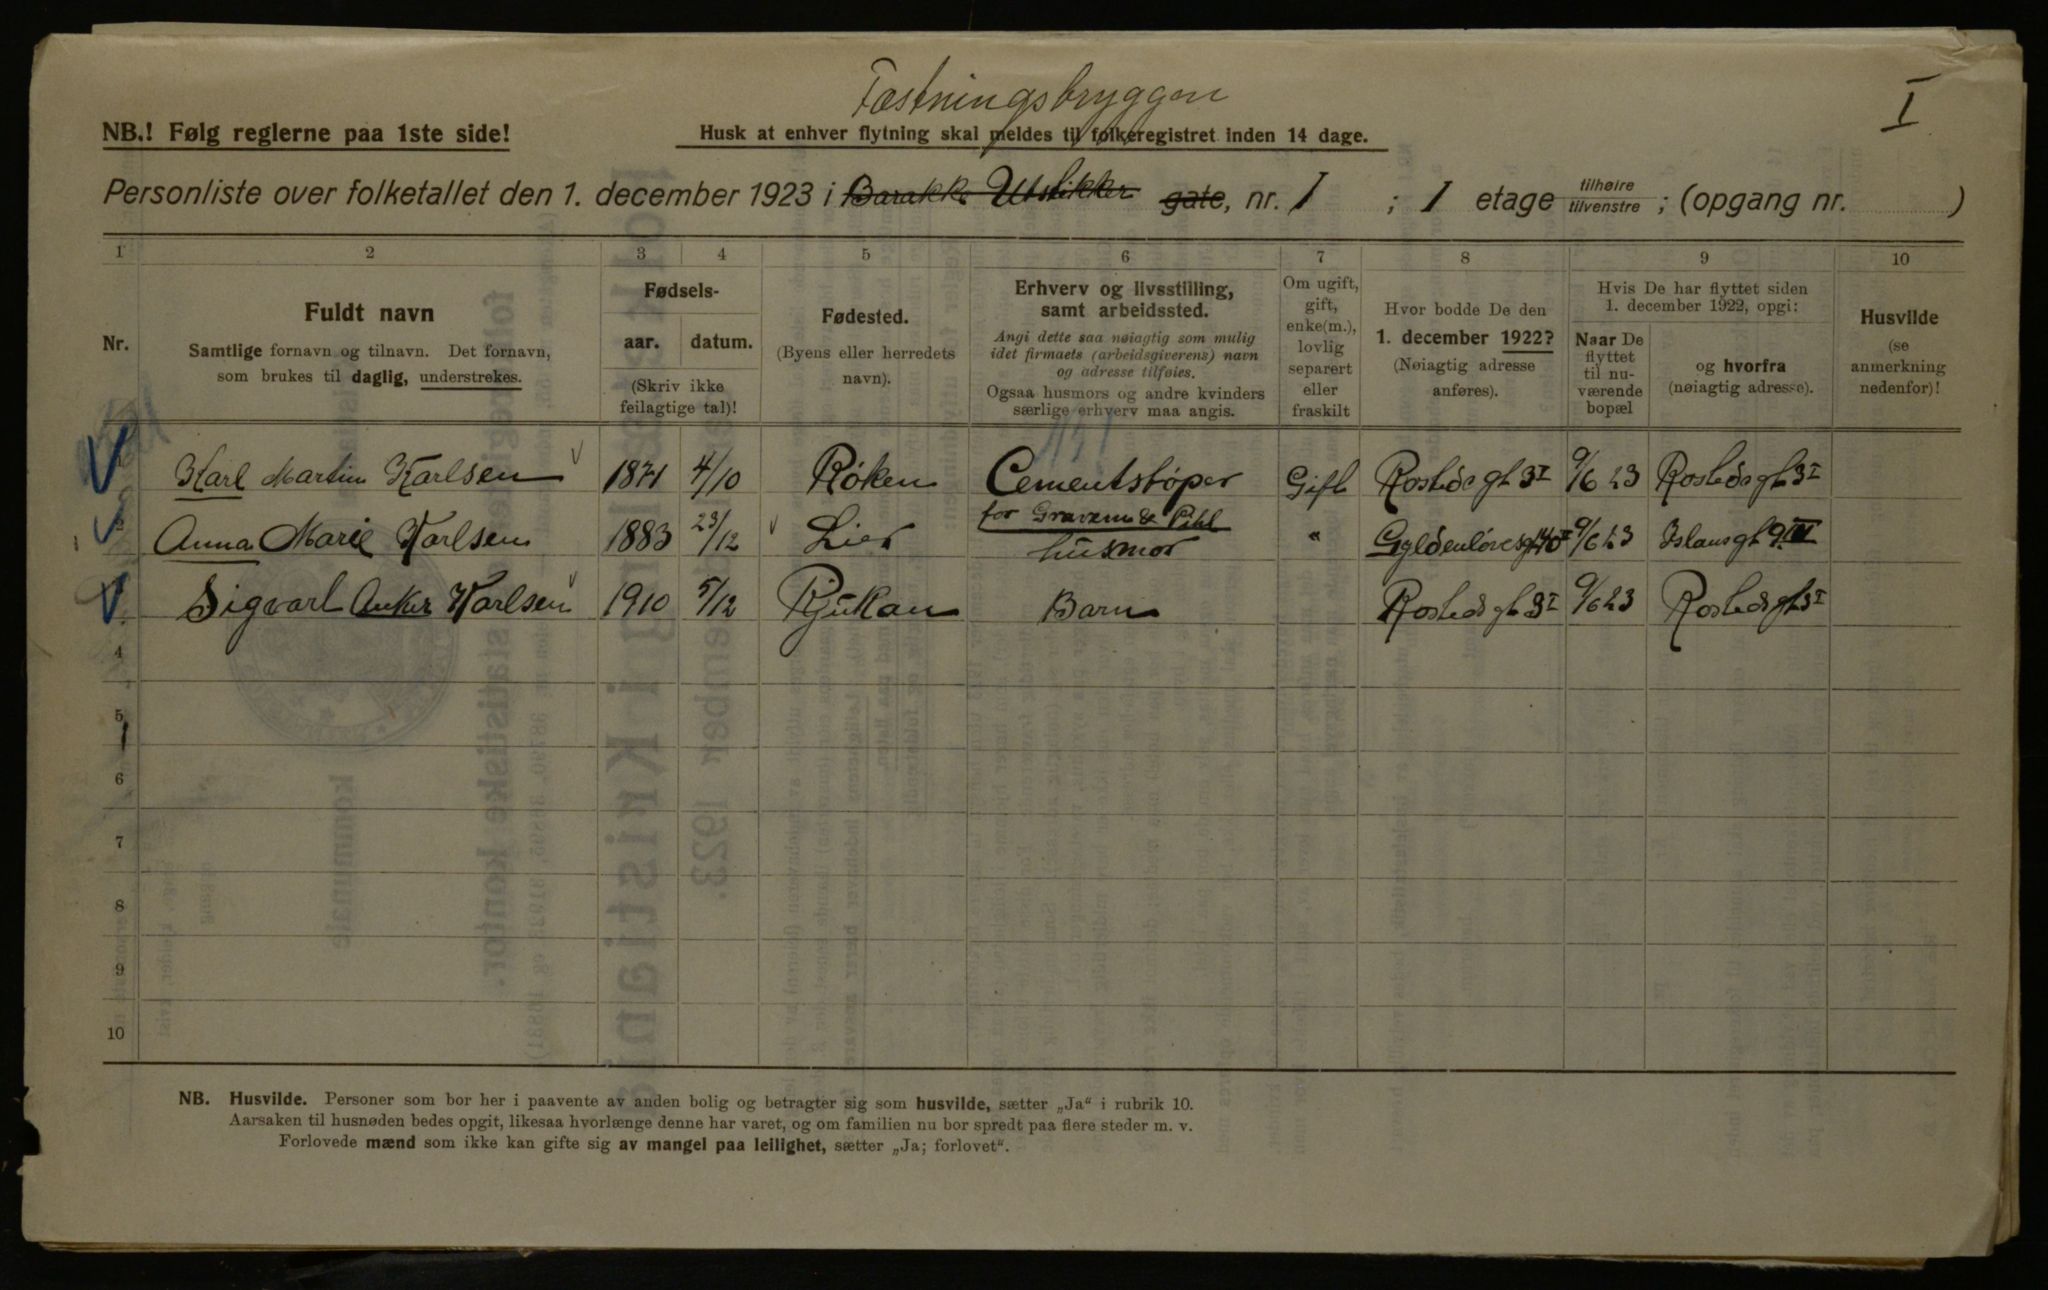 Fæstningsbryggen
I
NB.! Følg reglerne paa 1ste side!
Husk at enhver flytning skal meldes til folkeregistret inden 14 dage.
Personliste over folketallet den 1. december 1923 i Barakke Utstikker gate, nr. I ; 1 etage tilhøire tilvenstre ; (opgang nr. )
1 2 3 4 5 6 7 8 9 10
Nr.
Fuldt navn
Samtlige fornavn og tilnavn. Det fornavn,
som brukes til daglig, understrekes.
Fødsels-
aar. datum.
(Skriv ikke
feilagtige tal)!
Fødested.
(Byens eller herredets
navn).
Erhverv og livsstilling,
samt arbeidssted.
Angi dette saa nøiagtig som mulig
idet firmaets (arbeidsgiverens) navn
og adresse tilføies.
Ogsaa husmors og andre kvinders
særlige erhverv maa angis.
Om ugift,
gift,
enke(m.),
lovlig
separert
eller
fraskilt
Hvor bodde De den
1. december 1922?
(Nøiagtig adresse
anføres).
Hvis De har flyttet siden
1. december 1922, opgi:
Naar De
flyttet
til nu-
værende
bopæl
og hvorfra
(nøiagtig adresse).
Husvilde
(se
anmerkning
nedenfor)!
Karl Martin Karlsen 1871 4/10 Røken Cementstøper Gift Rosteds gt 3 I 9/6 23 Rosteds gt 3 I
for Gravem & Pihl
2 Anna Marie Karlsen 1883 23/12 Lier husmor " Gyldenløvesgt 40 I 9/6 23 Islansgt 9 III
Sigvart Anker Karlsen 1910 5/12 Rjukan Barn Rosteds gt 3 I 9/6 23 Rosteds gt 3 I
4
5
6
7
8
9
10
NB. Husvilde. Personer som bor her i paavente av anden bolig og betragter sig som husvilde, sætter „Ja“ i rubrik 10.
Aarsaken til husnøden bedes opgit, likesaa hvorlænge denne har varet, og om familien nu bor spredt paa flere steder m. v.
Forlovede mænd som ikke kan gifte sig av mangel paa leilighet, sætter „Ja; forlovet“.